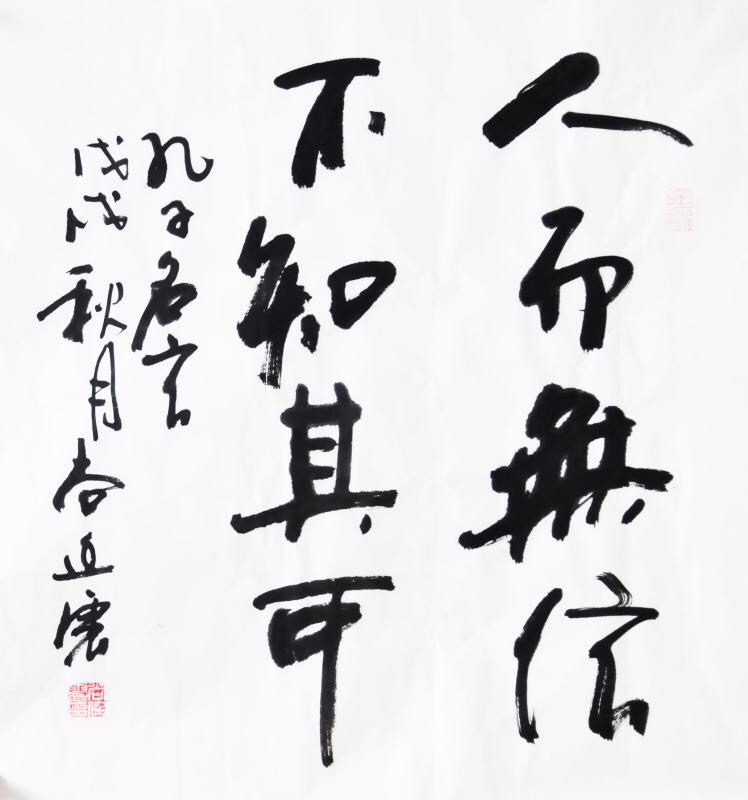 人而無信
不知其可
孔子名言
戊戌秋月尚連雲